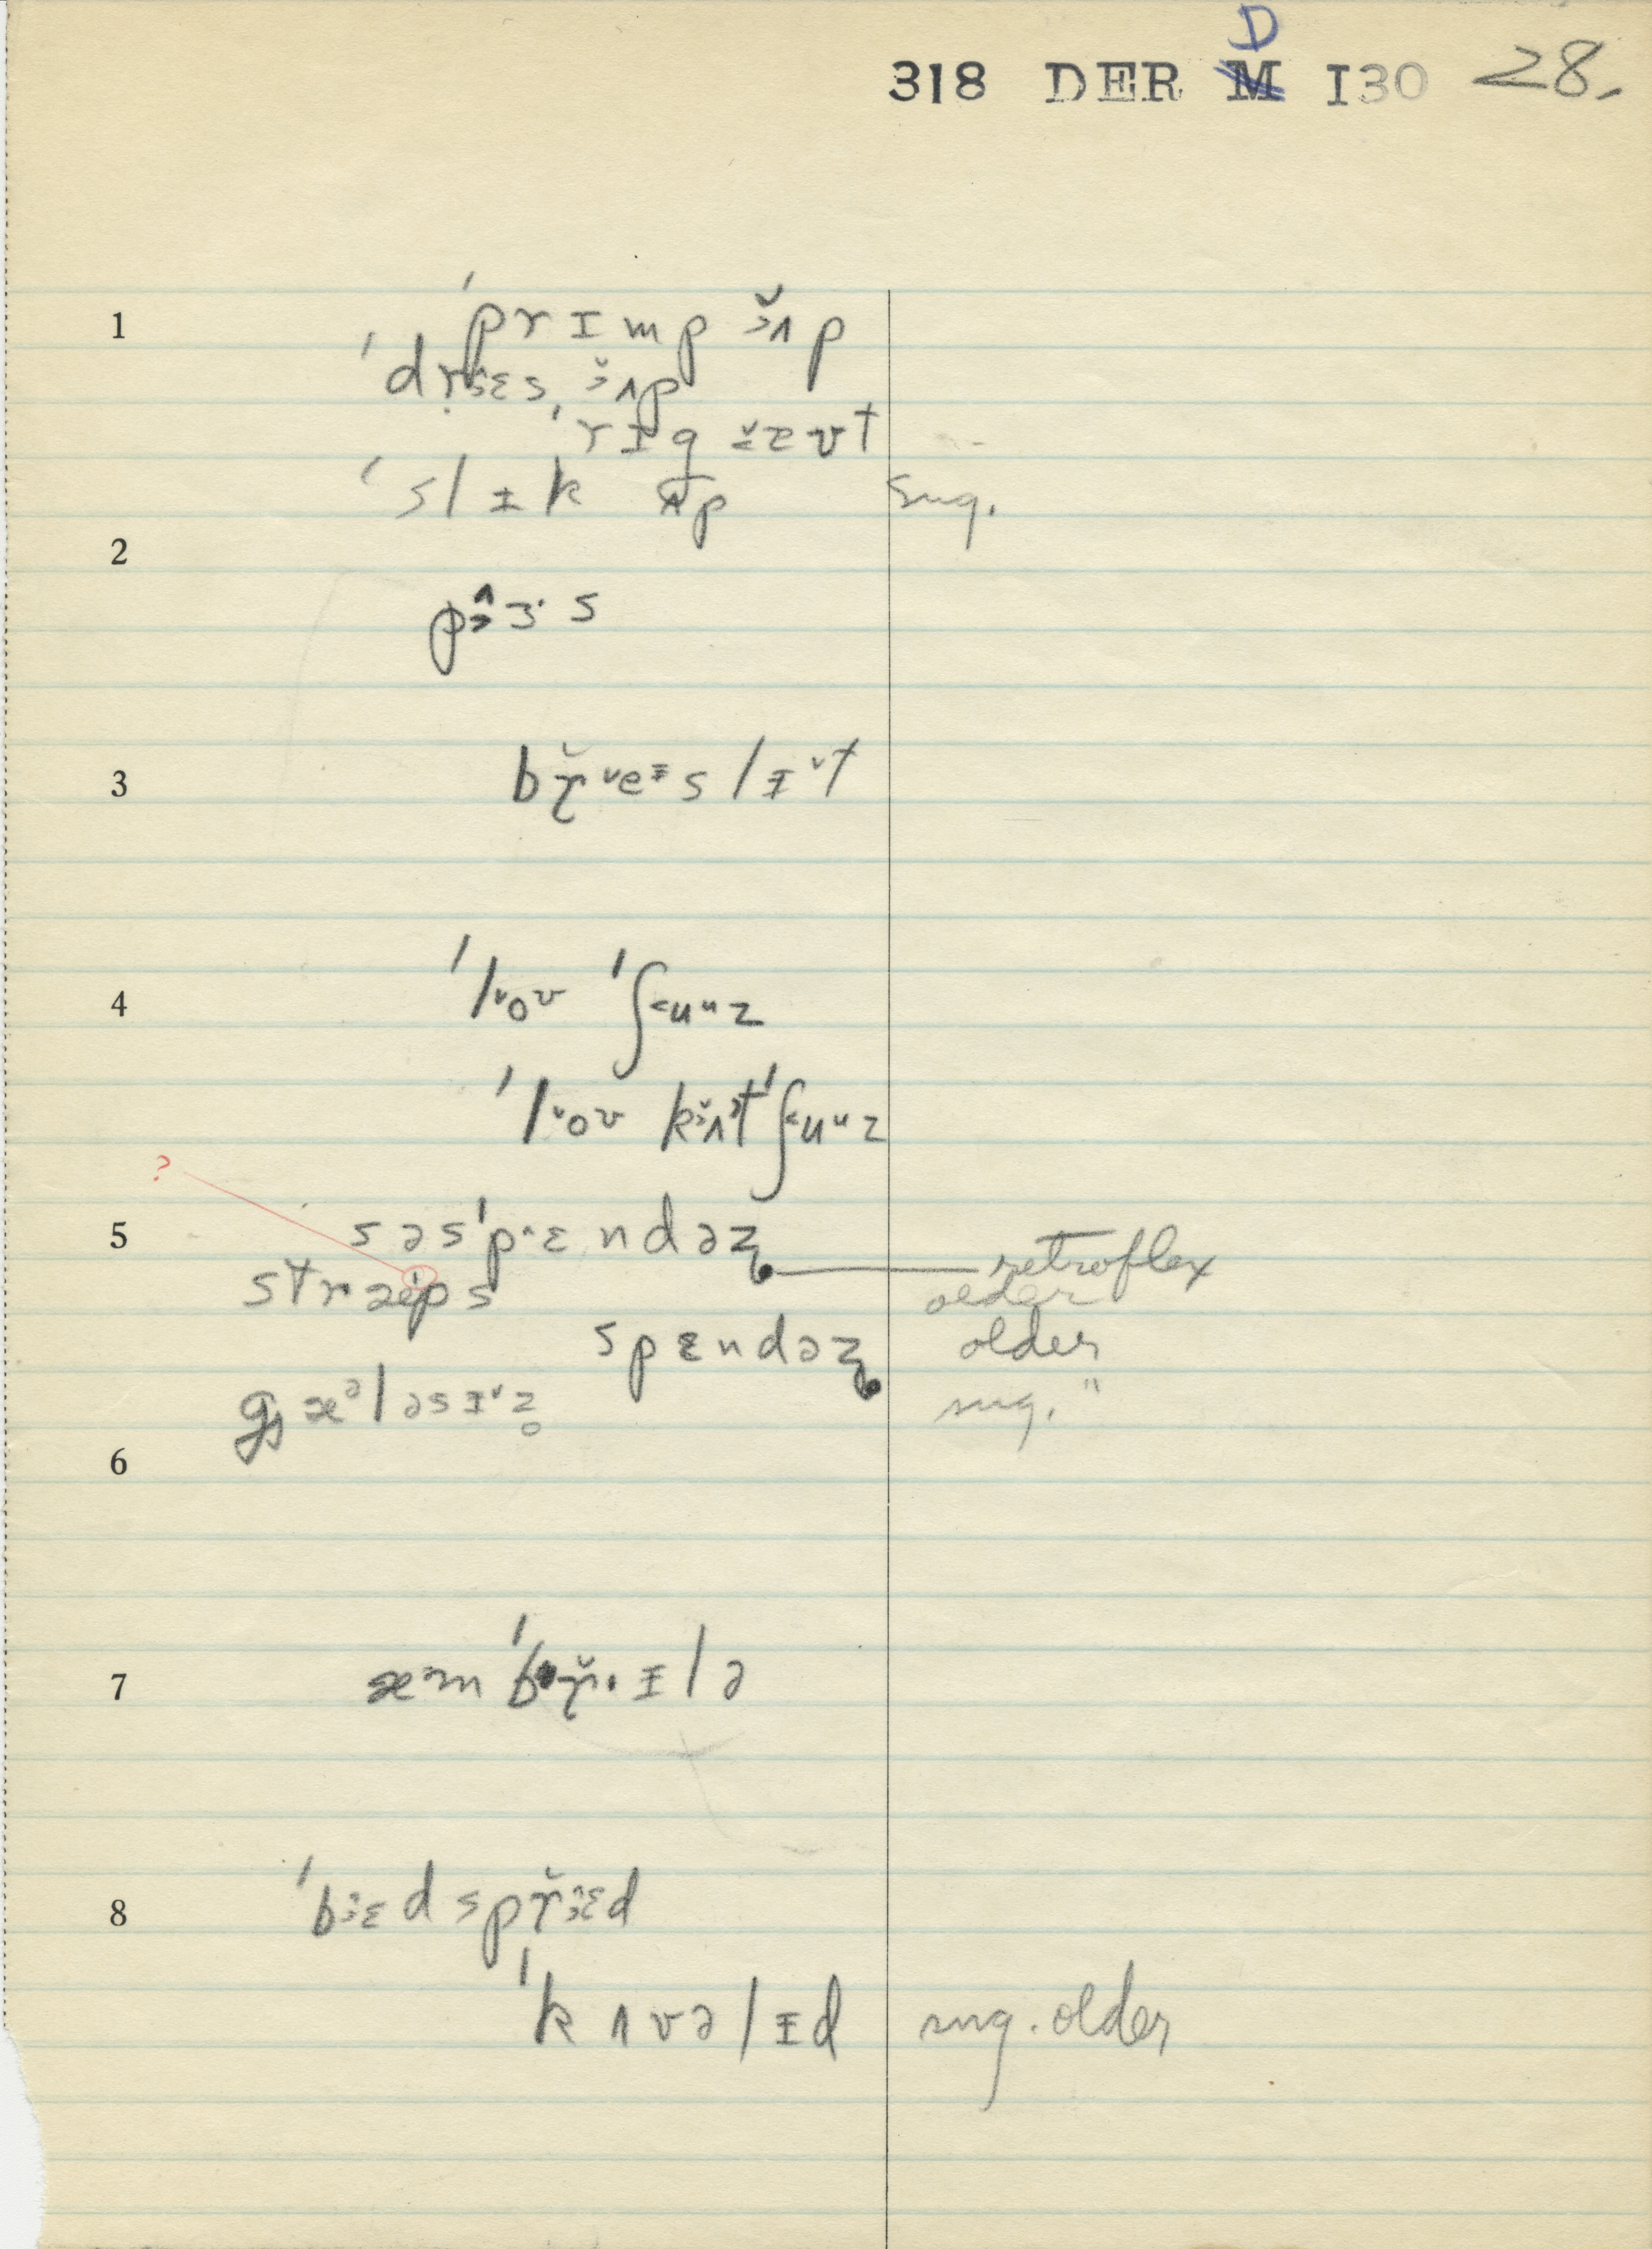 318 DER D I30 28.
1
ˈprɪmp ʌp
ˈdrɛs ʌp
ˈrɪg æʊt
ˈslɪk ʌp sug.
2
pɜ·s
3
breɪslɪt
4
ˈloʊ ˈʃuuz
ˈloʊ kʌt ˈʃuuz
?
5 səsˈpɛndəz retroflex
stræps older
spɛndəz older
gæᵊləsɪz̥ sug. "
6
7 æmˈbrɪlə
8 ˈbɛdsprɛd
ˈkʌvəlɪd sug. older